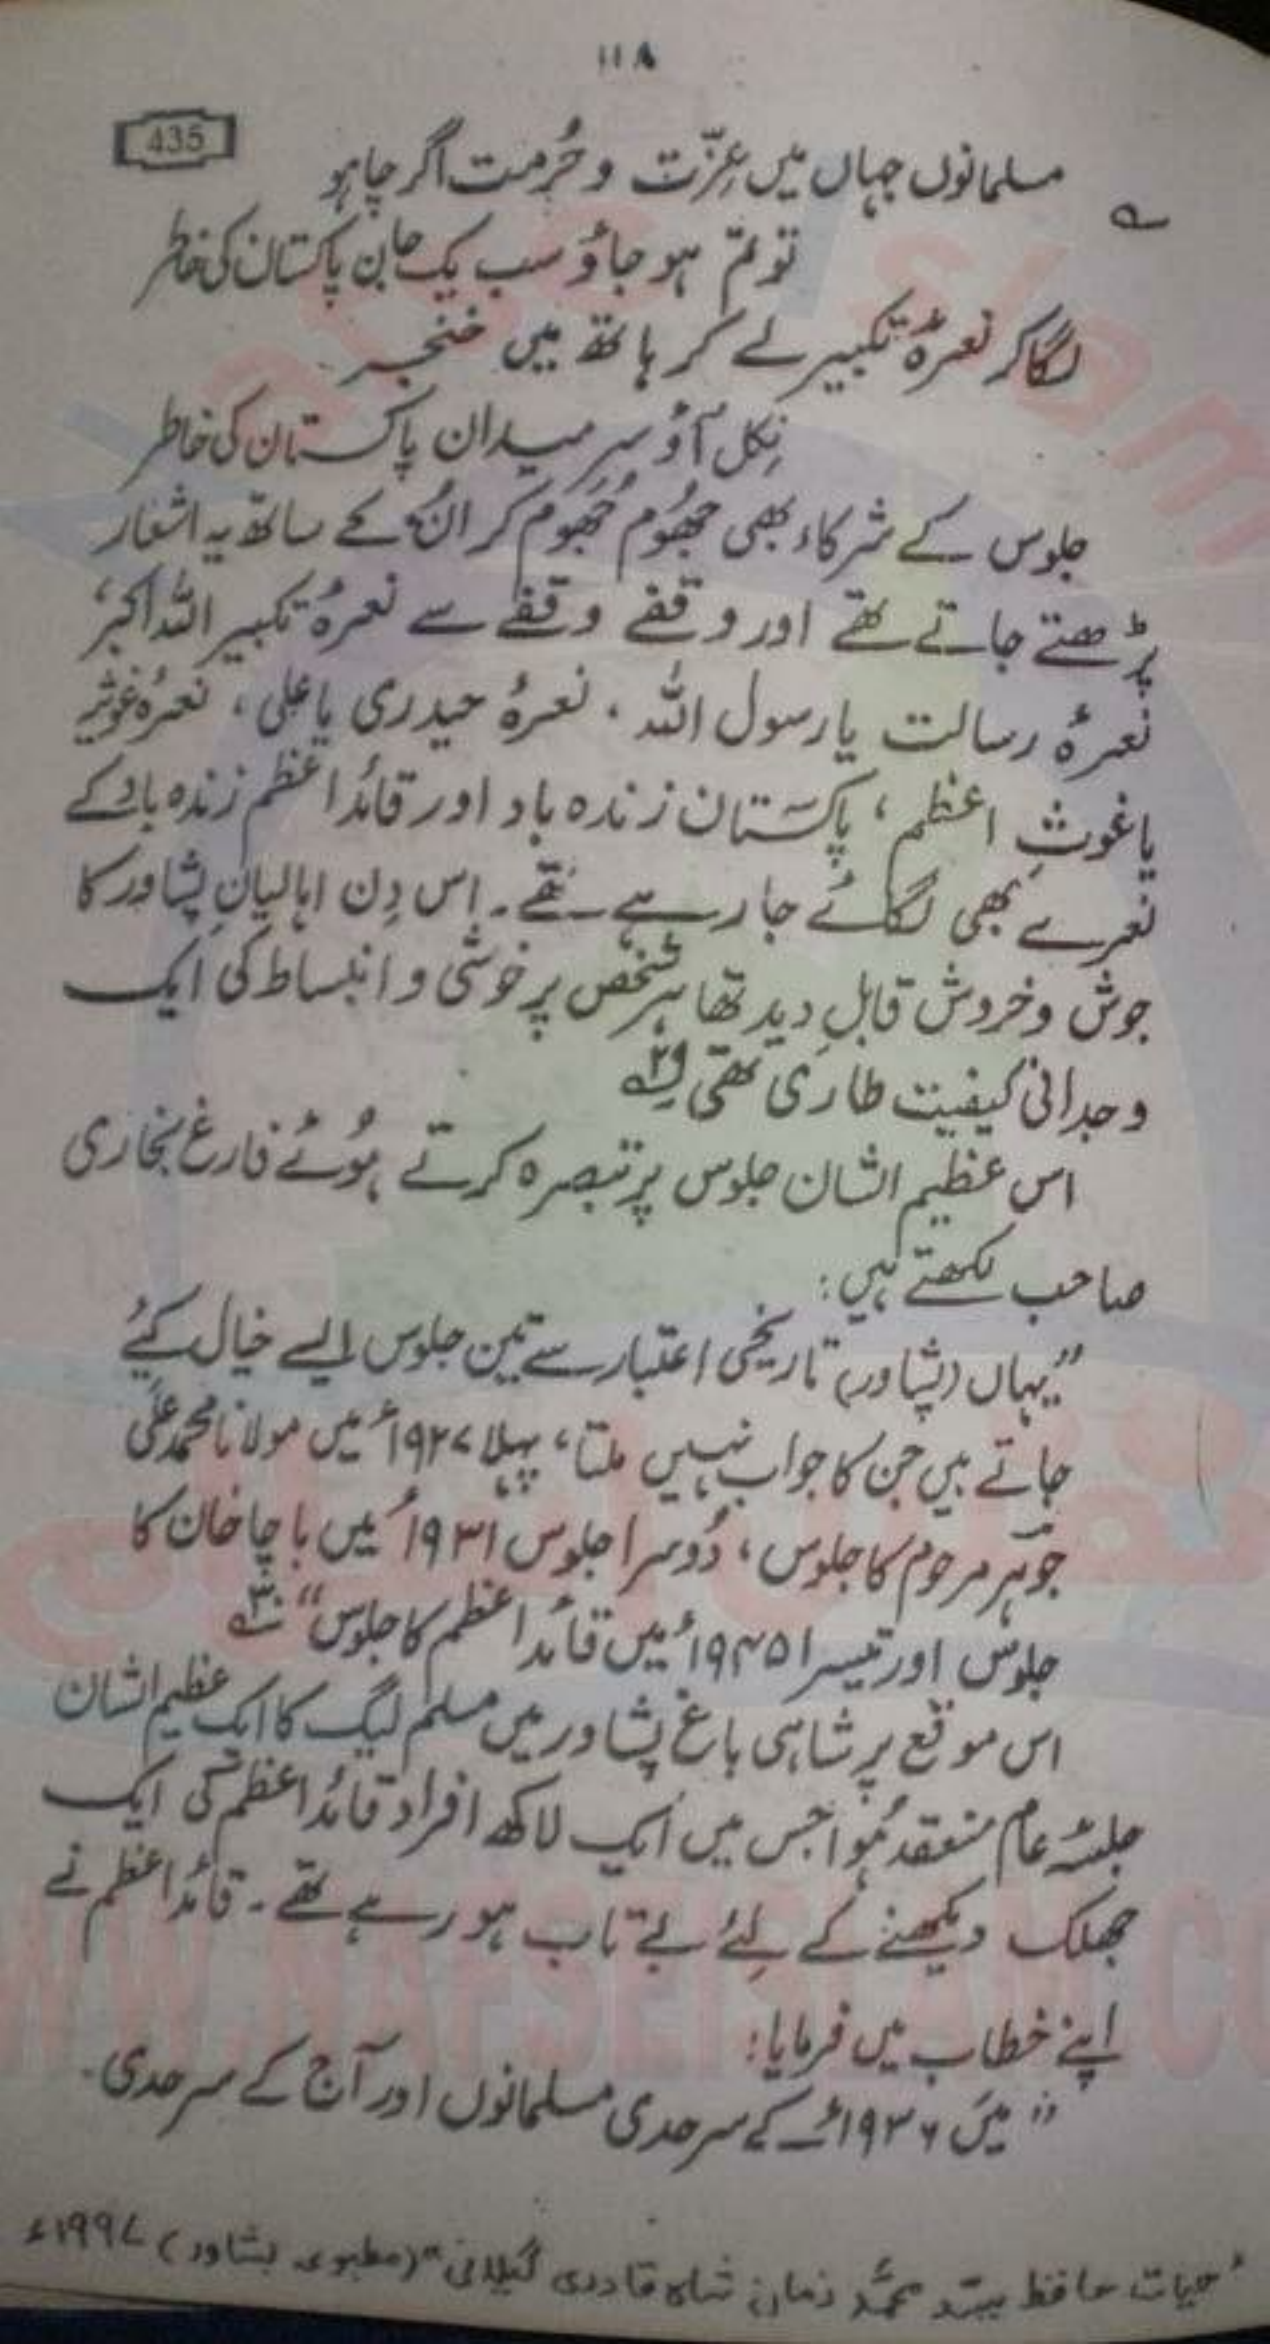 ۱۱۸
435
مسلمانوں جہاں میں عِزّت و حُرمت اگر چاہو
تو تم ہو جاؤ سب یک جا بن پاکستان کی خاطر
لگا کر نعرۂ تکبیر لے کر ہاتھ میں خنجر
نِکل آؤ سرِ میدان پاکستان کی خاطر
جلوس کے شرکاء بھی جھُوم جھُوم کر اُن کے ساتھ یہ اشعار
پڑھتے جاتے تھے اور وقفے وقفے سے نعرۂ تکبیر اللہ اکبر،
نعرۂ رسالت یا رسول اللہ، نعرۂ حیدری یا علی، نعرۂ غوثیہ
یا غوثِ اعظم، پاکستان زندہ باد اور قائد اعظم زندہ باد کے
نعرے بھی لگائے جا رہے تھے۔ اس دِن اہالیانِ پشاور کا
جوش و خروش قابلِ دید تھا ہر شخص پر خوشی و انبساط کی ایک
وجدانی کیفیت طاری تھی ۲۹؎
اس عظیم الشان جلوس پر تبصرہ کرتے ہُوئے فارغ بخاری
صاحب لکھتے ہیں:
”یہاں (پشاور) تاریخی اعتبار سے تین جلوس ایسے خیال کیئے
جاتے ہیں جن کا جواب نہیں ملتا، پہلا ۱۹۲۷ء میں مولانا محمد علی
جوہر مرحوم کا جلوس، دُوسرا جلوس ۱۹۳۱ء میں باچا خان کا
جلوس اور تیسرا ۱۹۴۵ء میں قائد اعظم کا جلوس“ ۳۰؎
اس موقع پر شاہی باغ پشاور میں مسلم لیگ کا ایک عظیم الشان
جلسۂ عام منعقد ہُوا جس میں ایک لاکھ افراد قائد اعظم کی ایک
جھلک دیکھنے کے لئے بے تاب ہو رہے تھے۔ قائد اعظم نے
اپنے خطاب میں فرمایا:
”میں ۱۹۳۶ء کے سرحدی مسلمانوں اور آج کے سرحدی
حیات حافظ سید محمد زمان شاہ قادری گیلانی“ (مطبوعہ پشاور) ۱۹۹۷ء
WWW.NAFSEISLAM.CO